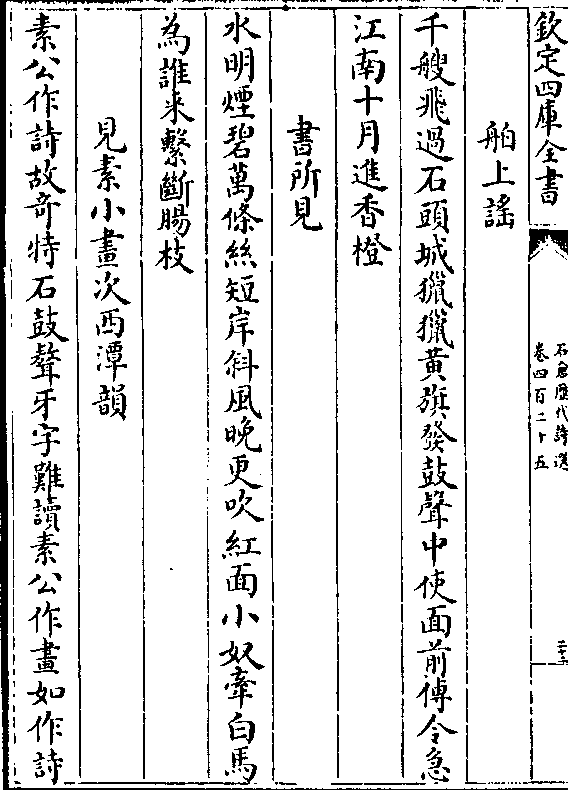 欽定四庫全書
石倉歷代詩選
卷四百二十五
二十三
舶上謡
千艘飛過石頭城獵獵黃旗發鼓聲中使面前傳令急
江南十月進香橙
書所見
水明煙碧萬條絲短岸斜風晚更吹紅面小奴牽白馬
為誰来繫斷腸枝
見素小畫次西潭韻
素公作詩故奇特石鼓聱牙字難讀素公作畫如作詩